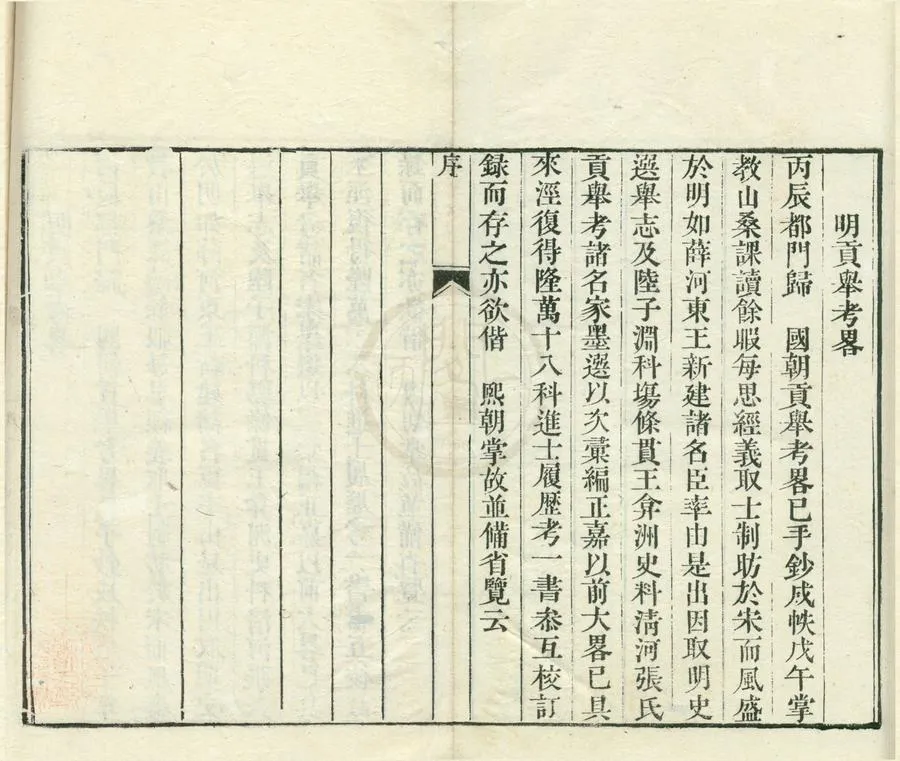 明貢舉考畧
丙辰都門歸　國朝貢舉考畧已手鈔成帙戊午掌
教山桑課讀餘暇每思經義取士制昉於宋而風盛
於明如薛河東王新建諸名臣率由是出因取明史
選舉志及陸子淵科塲條貫王弇洲史料淸河張氏
貢舉考諸名家墨選以次彙編正嘉以前大畧已具
來涇復得隆萬十八科進士履歷考一書叅互校訂
録而存之亦欲偕　熙朝掌故並備省覽云
序